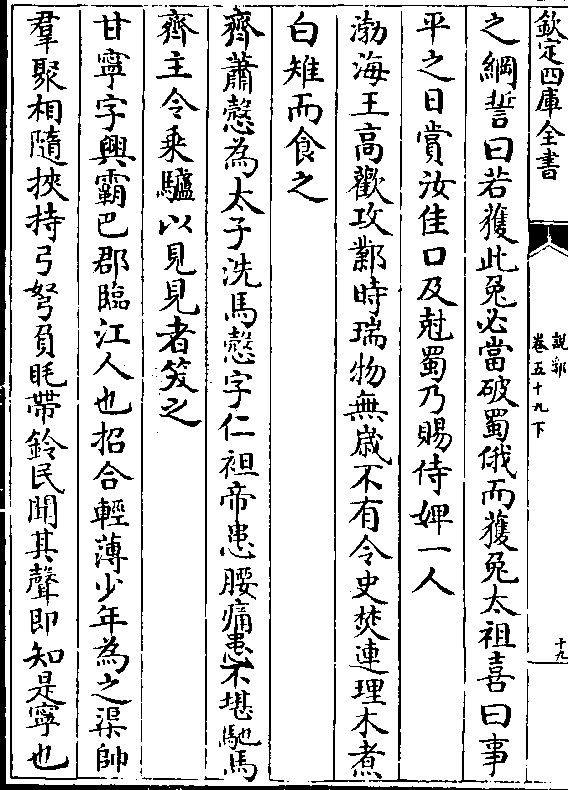 欽定四庫全書
說郛
卷五十九下
十九
之綱誓曰若獲此兎必當破蜀俄而獲兎太祖喜曰事
平之日賞汝佳口及尅蜀乃賜侍婢一人
渤海王高歡攻鄴時瑞物無歳不有令史焚連理木煮
白雉而食之
齊蕭慤為太子洗馬慤字仁祖帝患腰痛患不堪馳馬
齊主令乘驢以見見者笑之
甘寧字興霸巴郡臨江人也招合輕薄少年為之渠帥
羣聚相隨挾持弓弩負毦帶鈴民聞其聲即知是寧也